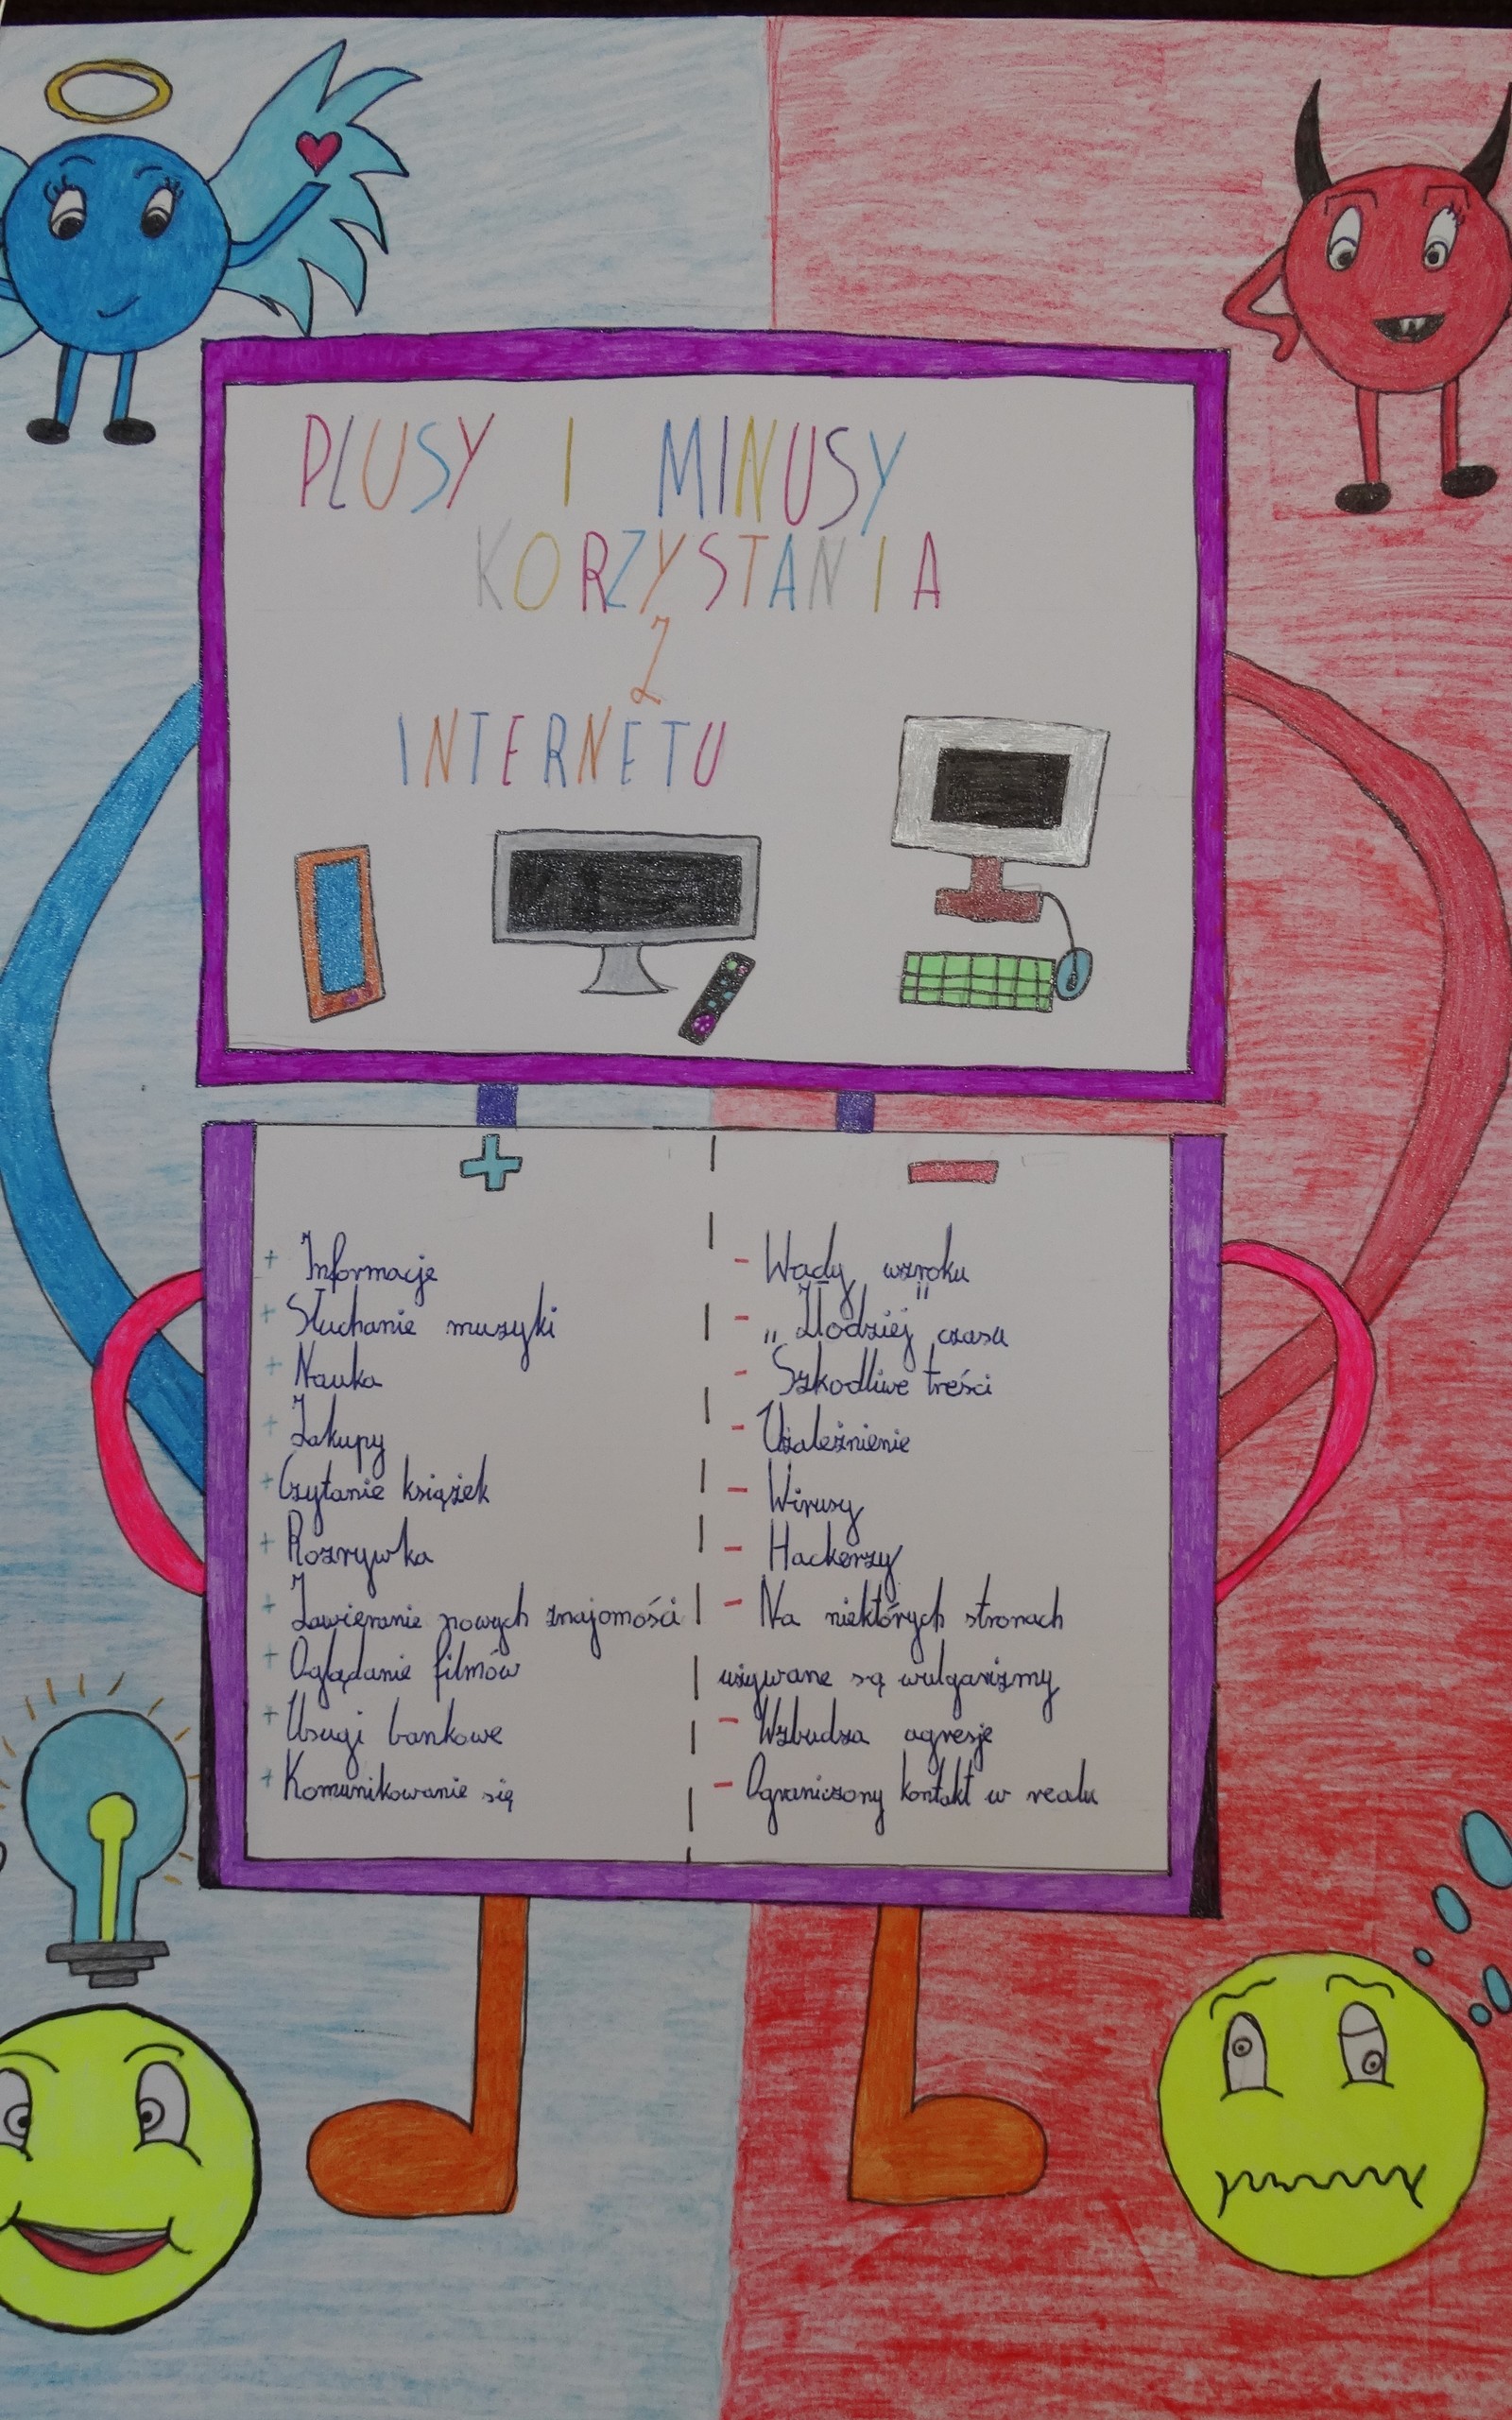 PLUSY I MINUSY
KORZYSTANIA
Z
INTERNETU
+ Informacje
+ Słuchanie muzyki
+ Nauka
+ Zakupy
+ Czytanie książek
+ Rozrywka
+ Zawieranie nowych znajomości
+ Oglądanie filmów
+ Usugi bankowe
+ Komunikowanie się
- Wady wzroku
- „Złodziej" czasu
- Szkodliwe treści
- Uzależnienie
- Wirusy
- Hackerzy
- Na niektórych stronach
używane są wulgaryzmy
- Wzbudza agresje
- Ograniczony kontakt w realu